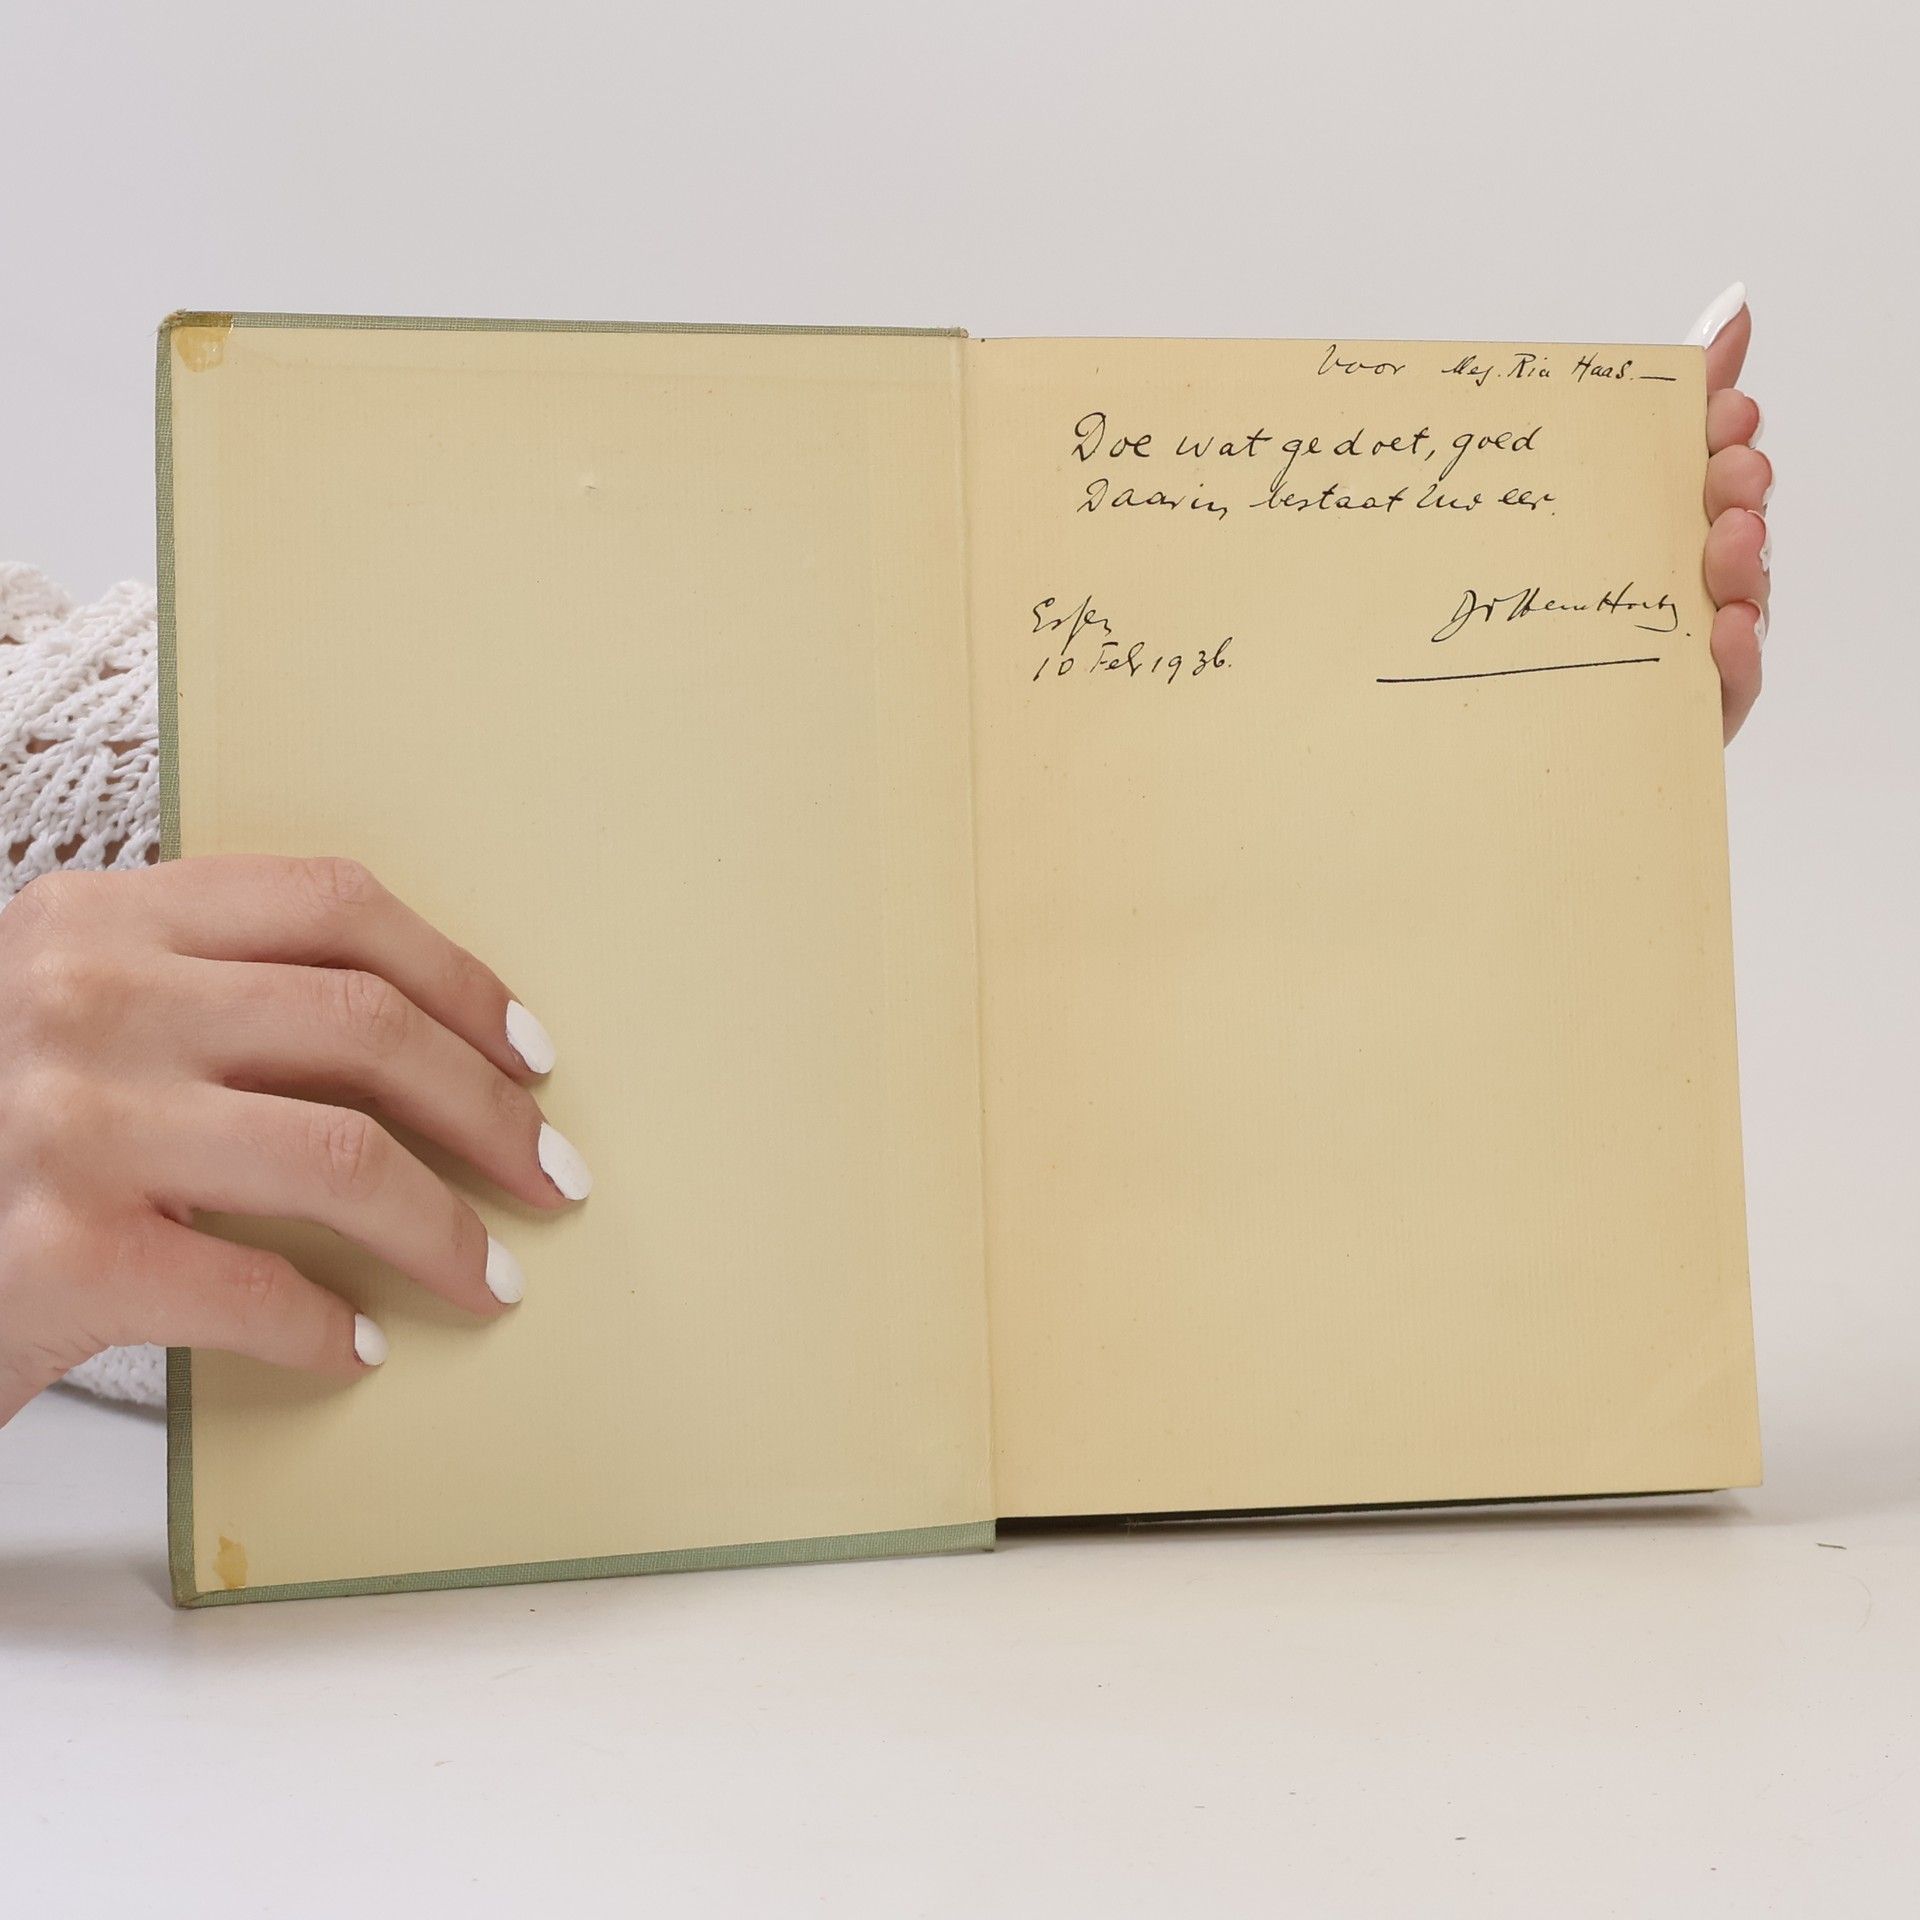 Voor Mej. Ria Haas.—
Doe wat ge doet, goed
Daarin bestaat Uw eer.
Essen
10 Feb 1936.
Dr